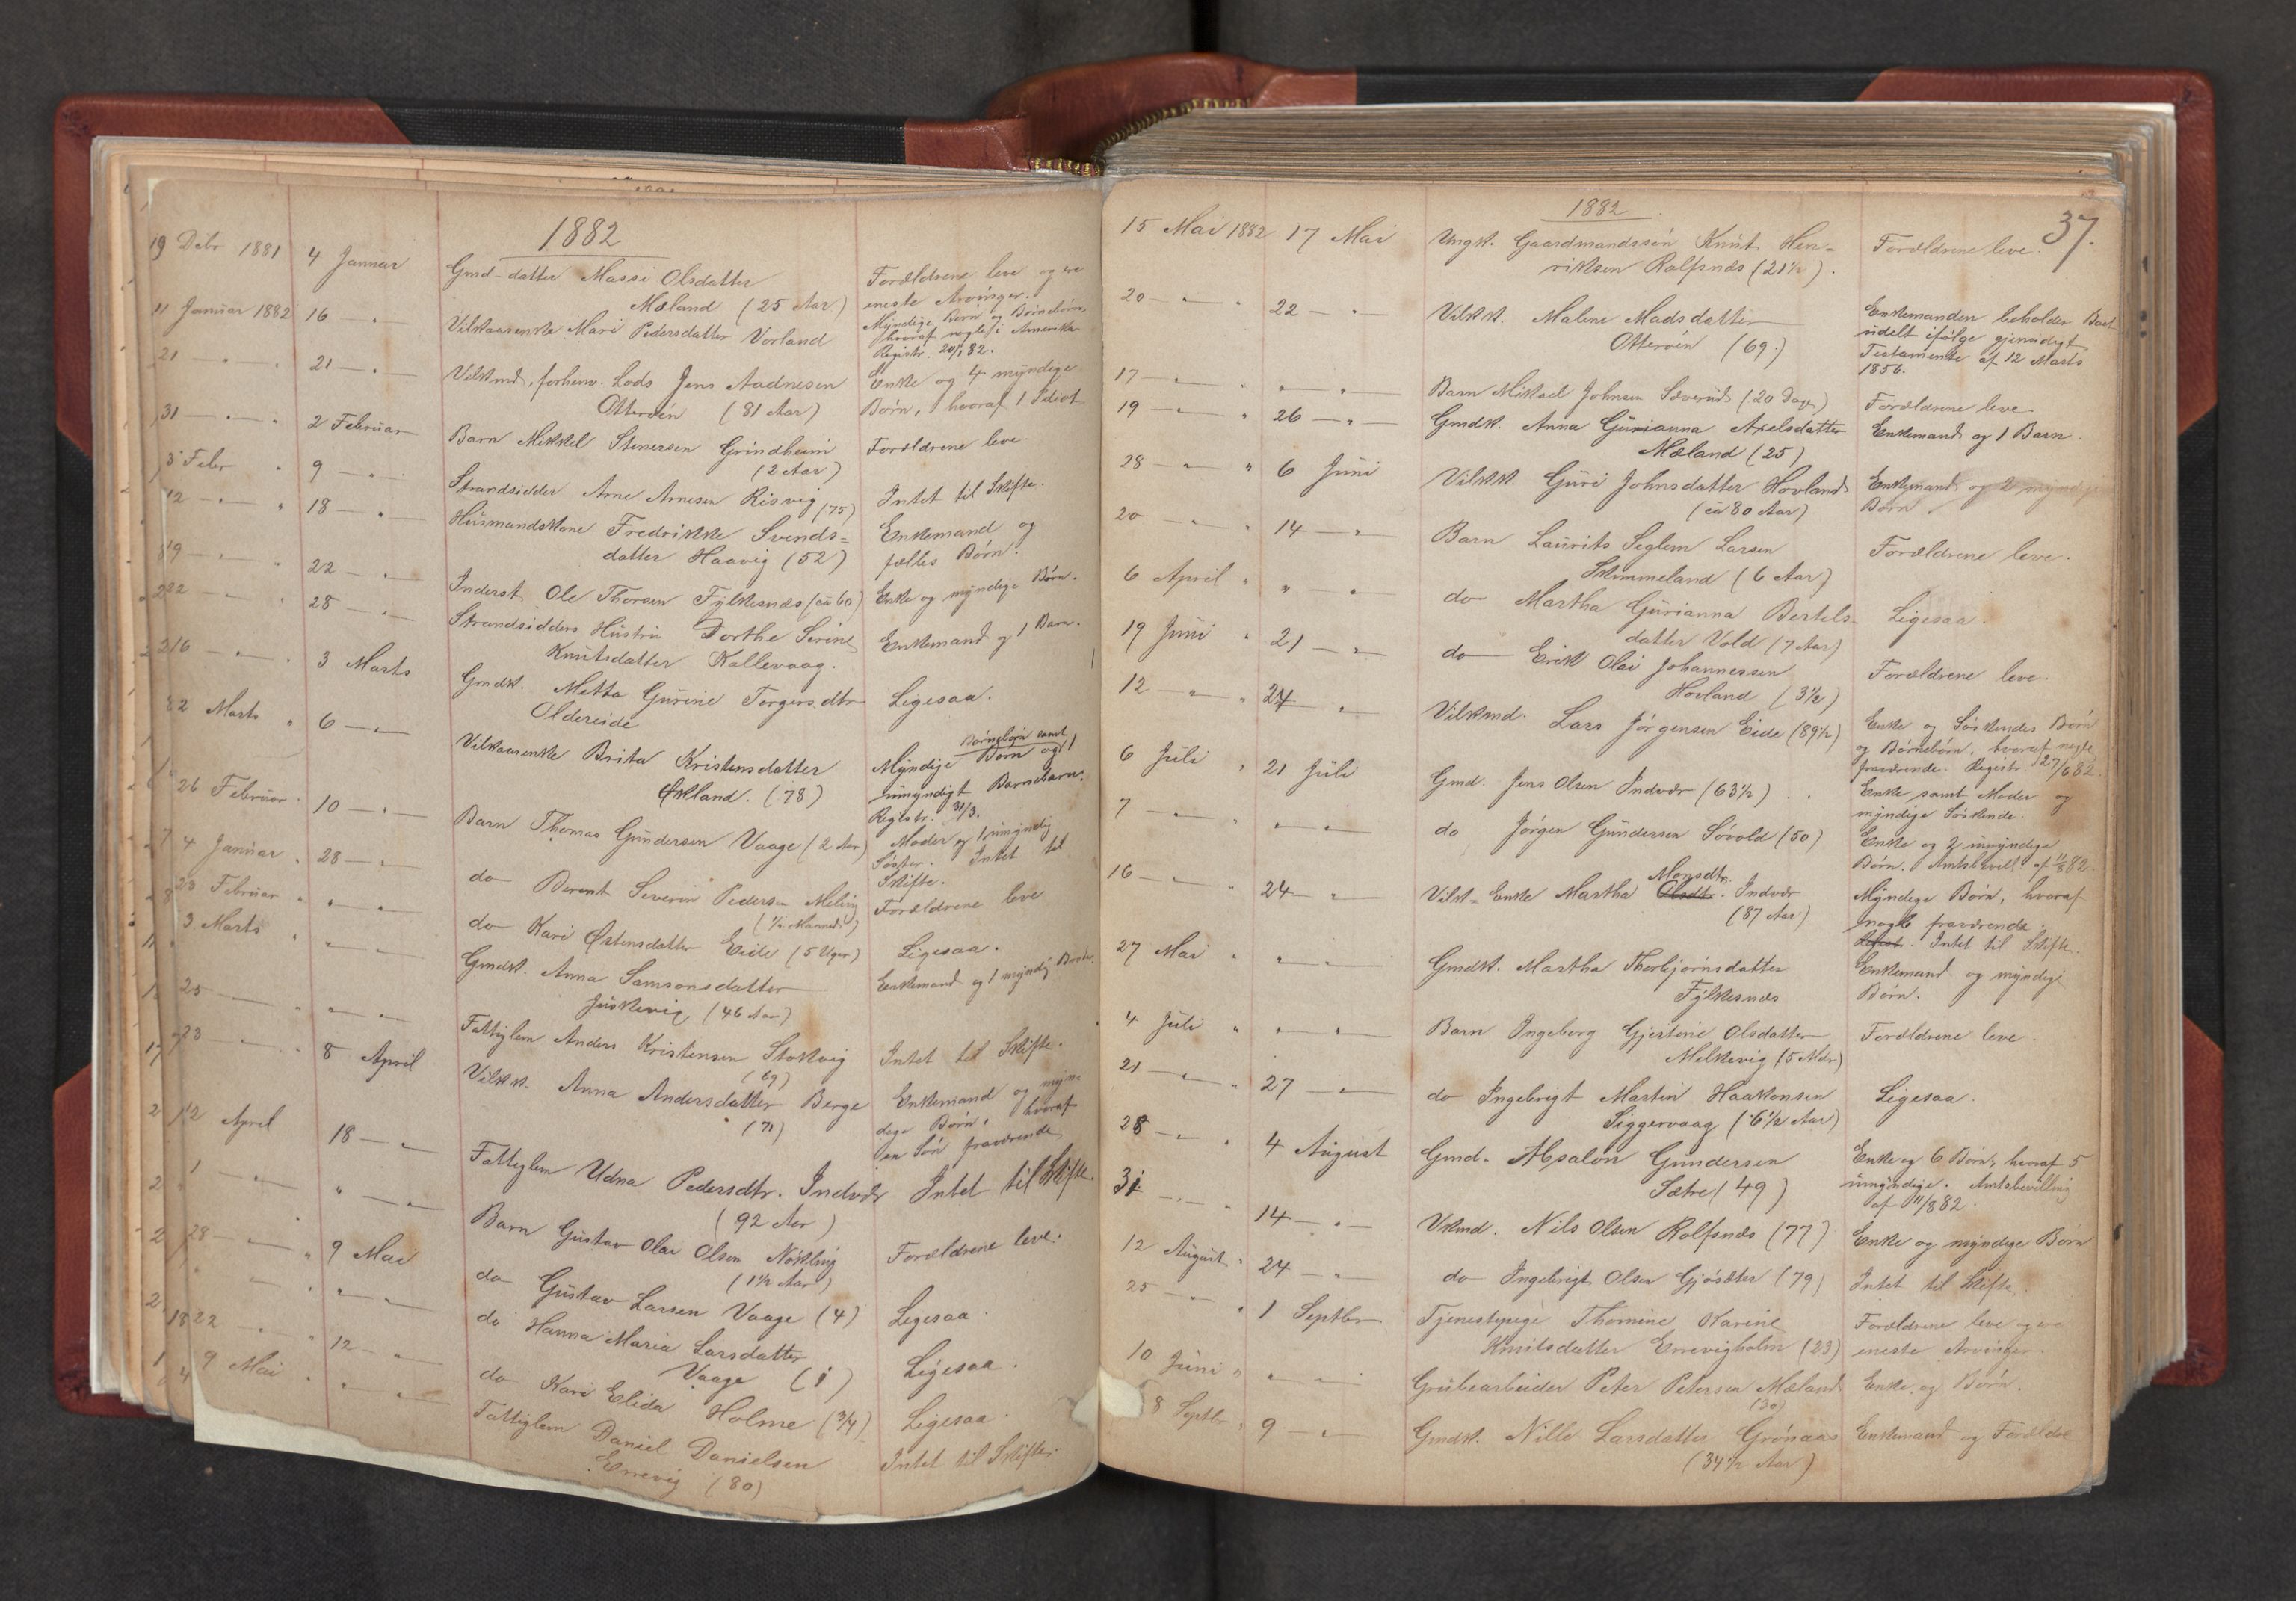 1882
19 Debr 1881 4 Januar Gmd-datter Massi Olsdatter Forældrene leve og ere
Mæland (25 Aar) eneste Arvinger.
11 Januar 1882 16 — " — Vilkaarsenke Mari Pedersdatter Vorland Myndige Børn og Børnebørn,
hvoraf nogle i Amerika
Registr. 20/1 82.
21 " " 21 — " — Vilkmd, forhenv. Lods Jens Aadnesen Enke og 4 myndige
Otterøen (81 Aar) Børn, hvoraf 1 Idiot
31 — " — " 2 Februar Barn Mikkel Stenersen Grindheim Forældrene leve
(2 Aar)
3 Febr " 9 — " — Strandsidder Arne Arnesen Risvig (75) Intet til Skifte.
12 — " — " 18 — " — Husmandskone Fredrikke Svends= Enkemand og
datter Haavig (52) fælles Børn.
19 — " — " 22 — " — Inderst Ole Thorsen Fylkesnæs (ca 60) Enke og myndige Børn.
22 — " — " 28 — " — Strandsidders Hustru Dorthe Serine Enkemand og 1 Barn.
Knutsdatter Kallevaag.
26 — " — " 3 Marts Gmdk. Metta Gurine Torgersdtr Ligesaa.
Oldereide
2 Marts " 6 — " — Vilkaarsenke Brita Kristensdatter Myndige Børn og 1
Børnebørn samt
Økland. (78) umyndigt Barnebarn.
Registr. 31/3.
26 Februar " 10 — " — Barn Thomas Gundersen Vaage (2 Aar) Moder og 1 umyndig
Søster. Intet til
Skifte.
4 Januar " 28 — " — do Berent Severin Pedersen Meling Forældrene leve
(1/2 Maaned)
23 Februar " " — " — do Kari Østensdatter Eide (5 Uger) Ligesaa.
3 Marts " " — " — Gmdk. Anna Samsonsdatter Enkemand og 1 myndig
Juskevig (46 Aar)
25 — " — " " — " — Fattiglem Anders Kristensen Stokvig Intet til Skifte.
(69)
23 — " — " 8 April Vilkk. Anna Andersdatter Berge Enkemand og myn=
(71) dige Børn, hvoraf
en Søn fraværende
12 April 18 — " — Fattiglem Udna Pedersdtr. Indvær Intet til Skifte
(92 Aar)
1 — " — " " — " — Barn Gustav Olai Olsen Nøkling Forældrene leve.
(1 1/2 Aar)
28 — " — " 9 Mai do Gustav Larsen Vaage (4) Ligesaa.
" — " — " " — " — do Hanna Maria Larsdatter
Vaage (1) Ligesaa.
22 — " — " 12 — " — do Kari Elida Holme (3/4) Ligesaa.
9 Mai " " — " — Fattiglem Daniel Danielsen Intet til Skifte.
Errevig (80)
1882
37.
15 Mai 1882 17 Mai Ungk. Gaardmandssøn Knut Hen= Forældrene leve.
riksen Rolfsnæs (21 1/2).
20 — " — " 22 — " — Vilkk. Malene Madsdatter Enkemanden beholder Boet
Otterøen (69.) udelt ifølge gjensidigt
Testamente af 12 Marts
1856.
17 — " — " " — " — Barn Mikael Johnsen Sæverud (20 Dage) Forældrene leve
19 — " — " 26 — " — Gmdk. Anna Gurianna Axelsdatter Enkemand og 1 Barn.
Mæland (25)
28 — " — " 6 Juni Vilkk. Guri Johnsdatter Hovland Enkemand og 2 myndige
(ca 80 Aar) Børn
20 — " — " 14 — " — Barn Laurits Seglem Larsen Forældrene leve.
Skimmeland (6 Aar)
6 April " " — " — do Martha Gurianna Bertels- Ligesaa.
datter Vold (7 Aar)
19 Juni " 21 — " — do Erik Olai Johannessen Forældrene leve.
Hovland (3 1/2)
12 — " — " 24 — " — Vilkmd. Lars Jørgensen Eide (89 1/2) Enke og Søskendes Børn
og Børnebørn, hvoraf nogle
fraværende. Registr. 27/6 82.
6 Juli " 21 Juli Gmd. Jens Olsen Indvær (63 1/2) . . Enke samt Moder og
myndige Søskende.
7 — " — " " — " — do Jørgen Gundersen Søvold (50) Enke og 2 umyndige
Børn. Amtsbevill. af 11/8 82.
16 — " — " 24 — " — Vilk-Enke Martha Olsdtr. Monsdtr. Indvær Myndige Børn, hvoraf
(87 Aar) nogle fraværende.
Intet til Skifte.
27 Mai " " — " — Gmdk. Martha Thorbjørnsdatter Enkemand og myndige
Fylkesnæs Børn.
4 Juli " " — " — Barn Ingeborg Gjertine Olsdatter Forældrene leve.
Melkevig (5 Mdr)
21 — " — " 27 — " — do Ingebrigt Martin Haakonsen Ligesaa.
Siggervaag (6 1/2 Aar)
28 — " — " 4 August Gmd. Absalon Gundersen Enke og 6 Børn, hvoraf 5
Sætre (49) umyndige. Amtsbevilling
af 11/8 82.
31 — " — " 14 — " — Vkmd. Nils Olsen Rolfsnæs (77) Enke og myndige Børn
12 August " 24 — " — do Ingebrigt Olsen Gjøsæter (79) Intet til Skifte
25 — " — " 1 Septbr Tjenestepige Thomine Karine Forældrene leve og ere
Knutsdatter Errevigholm (23) eneste Arvinger.
10 Juni " " — " — Grubearbeider Peter Petersen Mæland Enke og Børn.
(30)
8 Septbr " 9 — " — Gmdk. Nille Larsdatter Grønaas Enkemand og Forældre
(34 1/2 Aar)